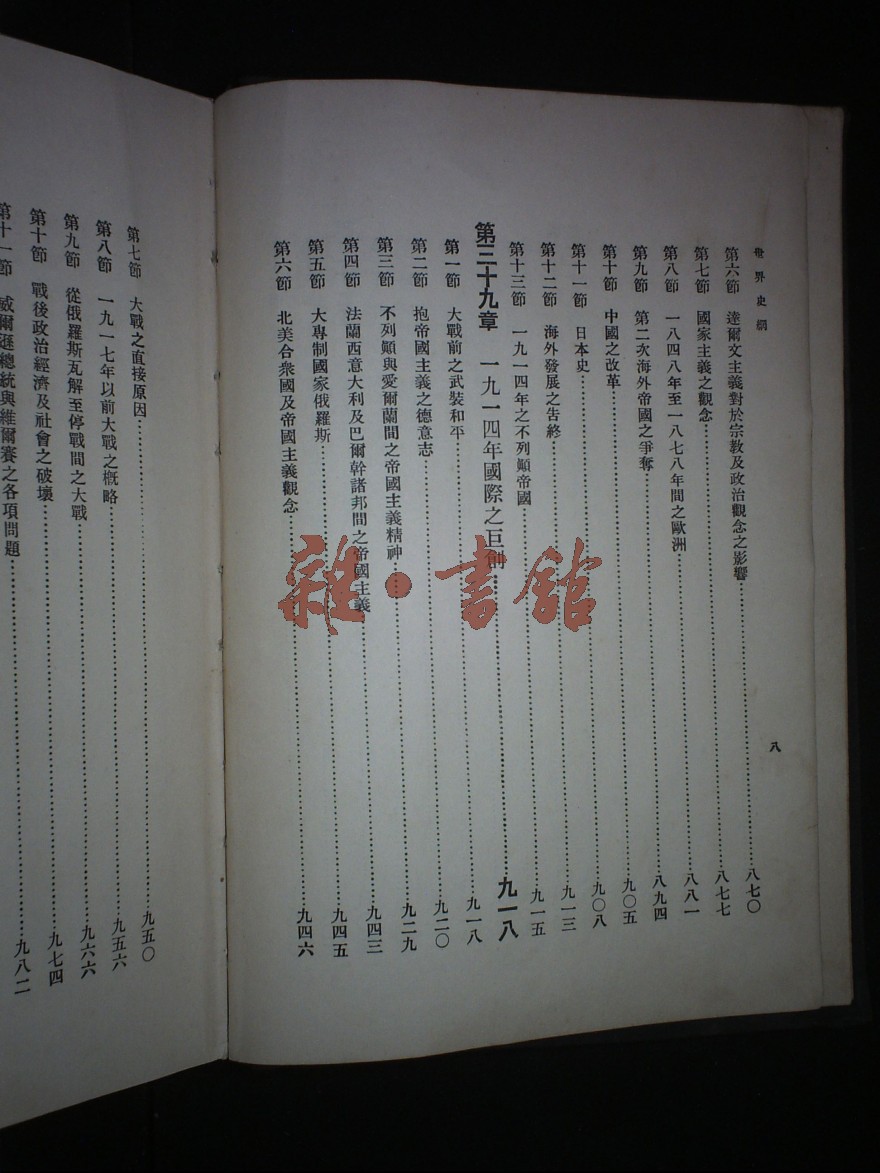 世界史綱
八
第六節 達爾文主義對於宗教及政治觀念之影響……八七〇
第七節 國家主義之觀念……八七七
第八節 一八四八年至一八七八年間之歐洲……八八一
第九節 第二次海外帝國之爭奪……八九四
第十節 中國之改革……九〇五
第十一節 日本史……九〇八
第十二節 海外發展之告終……九一三
第十三節 一九一四年之不列顛帝國……九一五
第三十九章 一九一四年國際之巨創……九一八
第一節 大戰前之武裝和平……九一八
第二節 抱帝國主義之德意志……九二〇
第三節 不列顛與愛爾蘭間之帝國主義精神……九二九
第四節 法蘭西意大利及巴爾幹諸邦間之帝國主義……九四三
第五節 大專制國家俄羅斯……九四五
第六節 北美合衆國及帝國主義觀念……九四六
第七節 大戰之直接原因……九五〇
第八節 一九一七年以前大戰之概略……九五六
第九節 從俄羅斯瓦解至停戰間之大戰……九六六
第十節 戰後政治經濟及社會之破壞……九七四
第十一節 威爾遜總統與維爾賽之各項問題……九八二
雜·書館